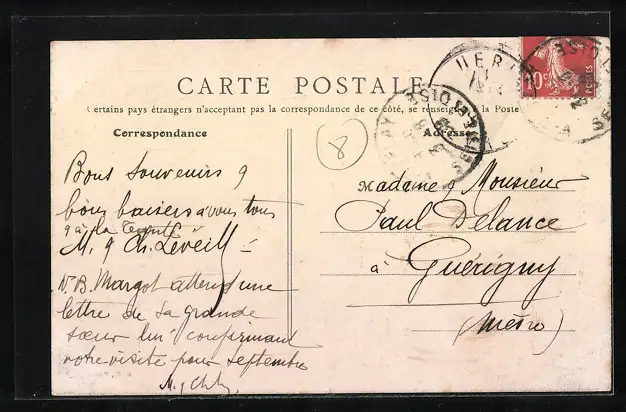 CARTE POSTALE
Certains pays étrangers n'acceptant pas la correspondance de ce côté, se renseigner à la Poste
Correspondance
Adresse
8
10c
POSTES
Bons souvenirs &
bons baisers à vous tous
& à la
M. & Ch. Léveillé
N.B. Margot attend une
lettre de sa grande
sœur lui confirmant
votre visite pour septembre
M. & Ch.
Madame & Monsieur
Paul Delance
à Guérigny
(Nièvre)